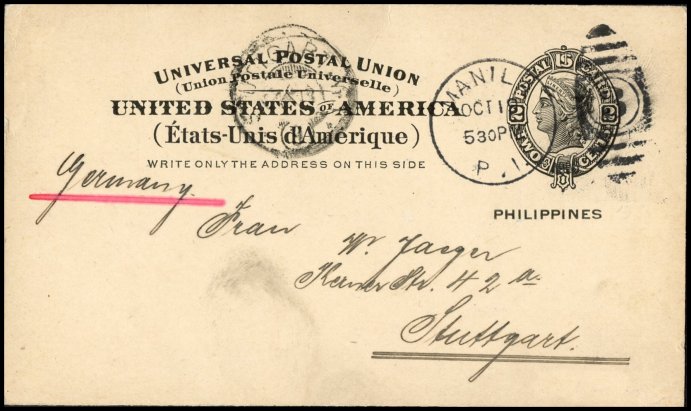 UNIVERSAL POSTAL UNION
(Union Postale Universelle)
UNITED STATES OF AMERICA
(États-Unis d'Amérique)
WRITE ONLY THE ADDRESS ON THIS SIDE
MANIL
OCT 1
530P
P. I.
POSTAL CARD
2 2
TWO CENTS
PHILIPPINES
Germany.
Frau
W. Jaeger
Kerner Str. 42 a.
Stuttgart.